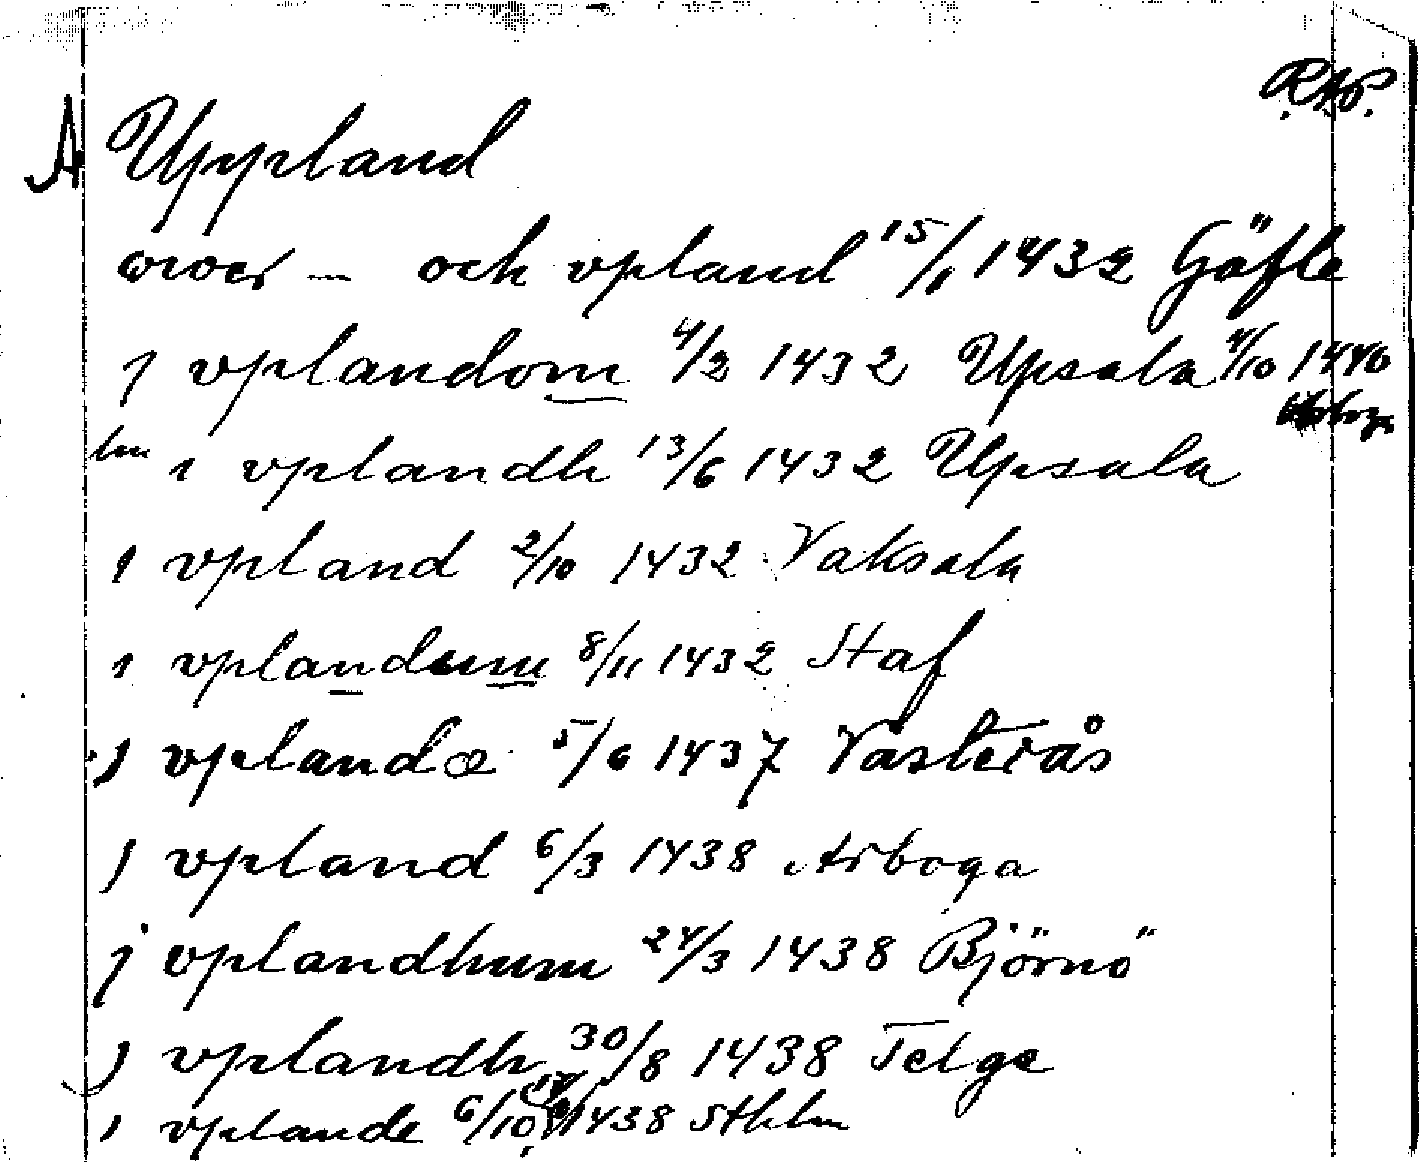 R.A.P.
A Uppland
ower — och vpland 15/1 1432 Gäfle
j vplandom 4/2 1432 Upsala 4/10 1440
i vplandh 13/6 1432 Upsala
i vpland 2/10 1432 Vaksala
i vplandum 8/11 1432 Staf
j vplandæ 5/6 1437 Västerås
j vpland 6/3 1438 Arboga
j vplandhum 24/3 1438 Björnö
j vplandh 30/8 1438 Telge
i vplande 6/10, 1438 Sthlm